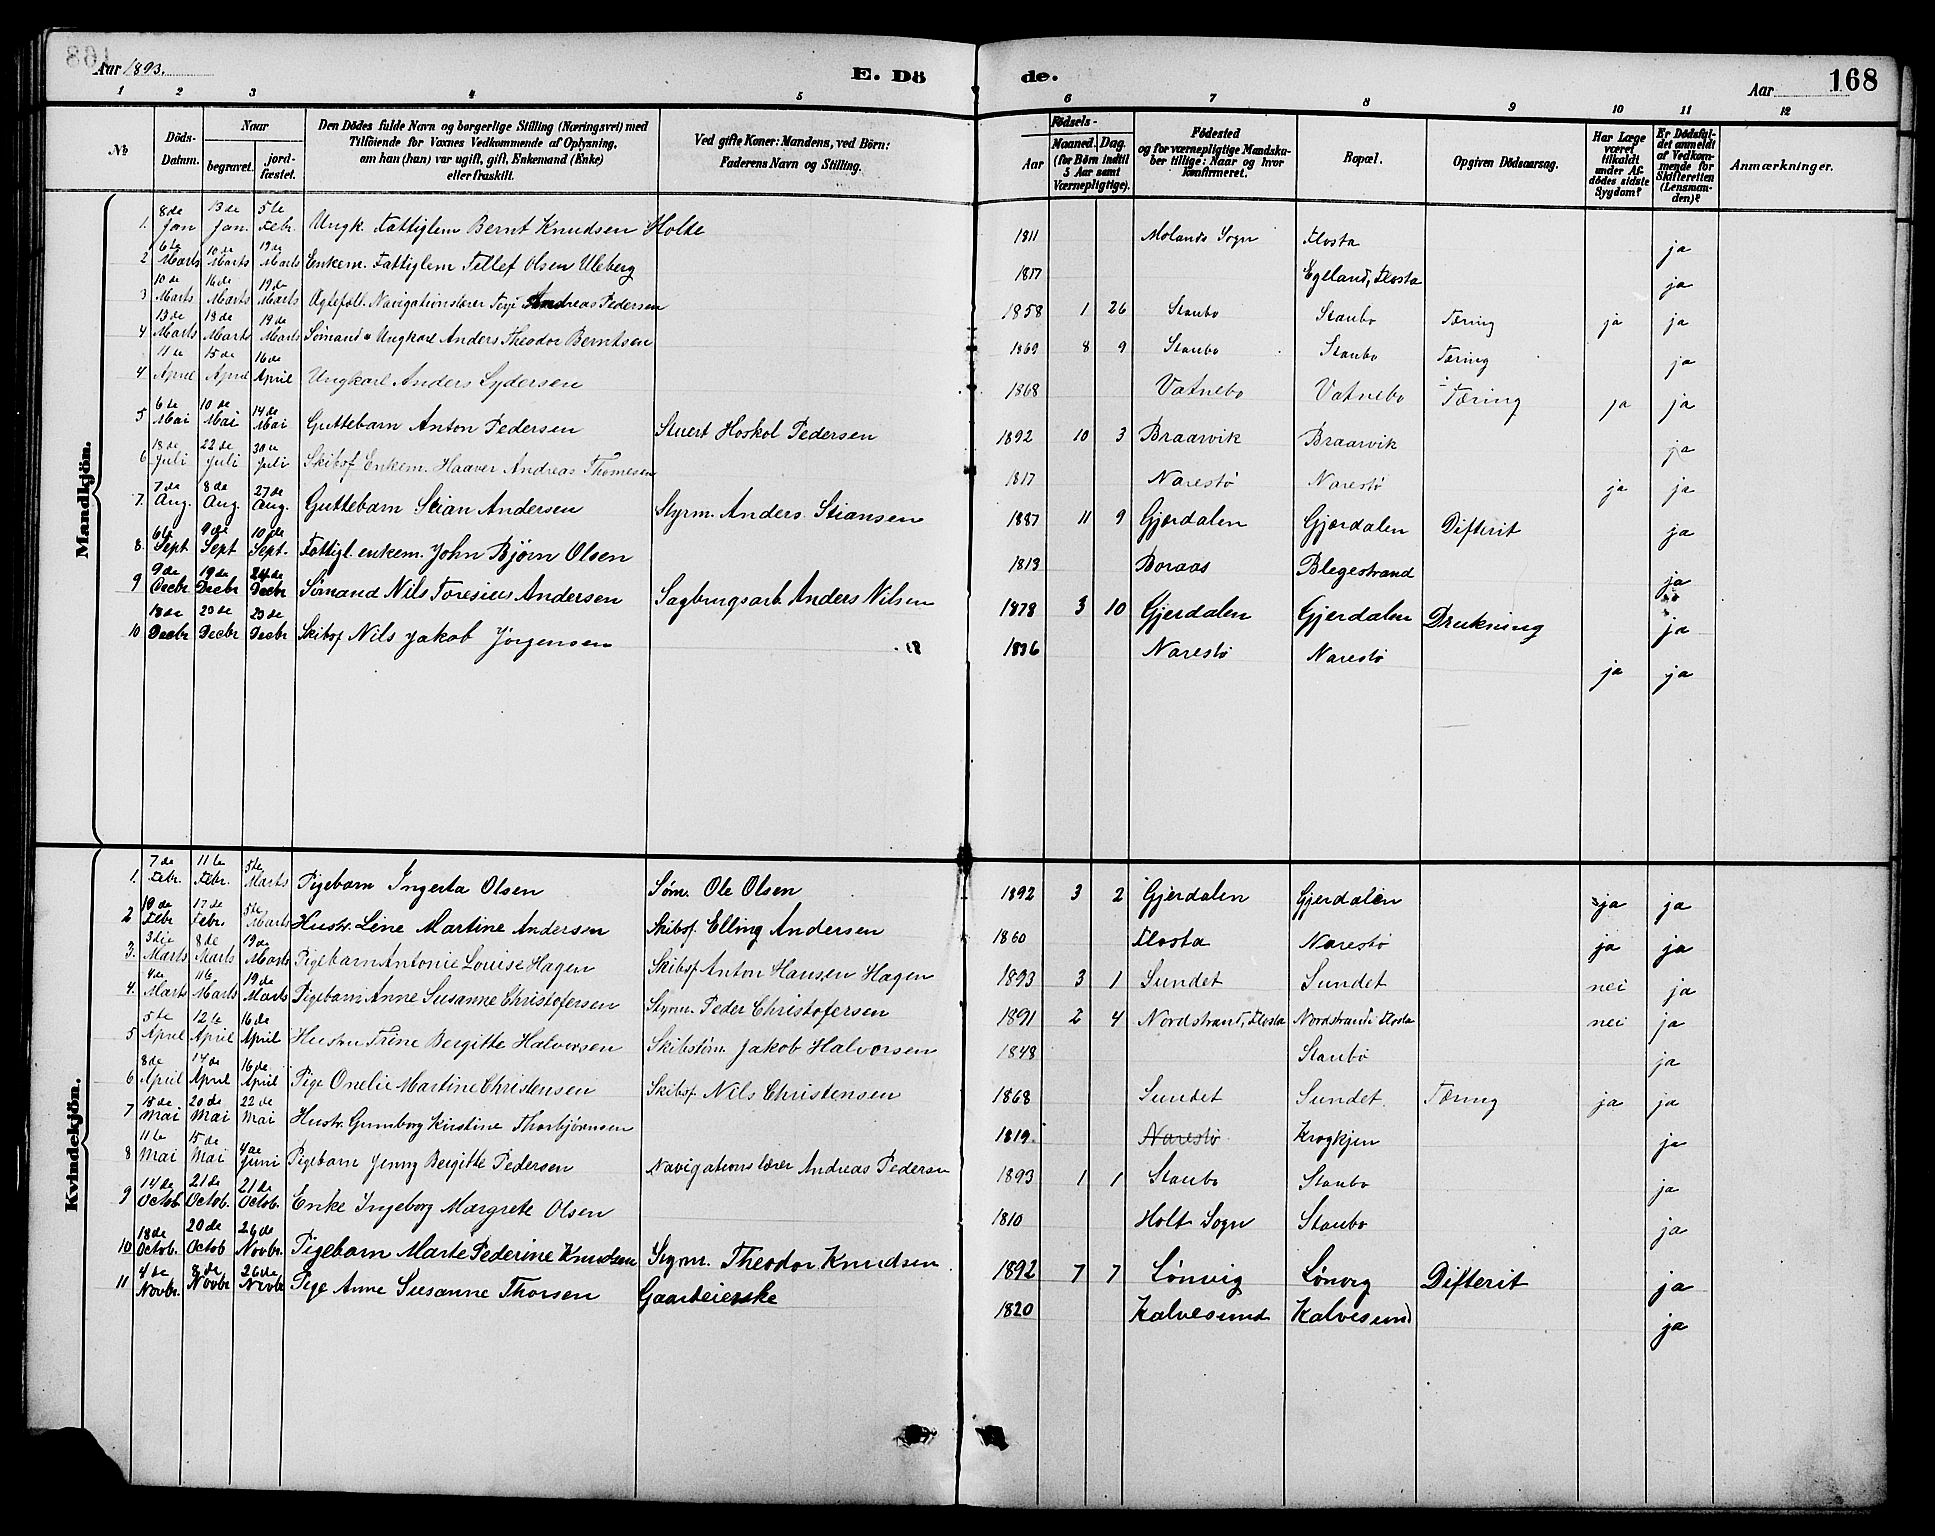 Aar 1893.
E. Dö
de.
Aar
168
1 2 3 4 5 6 7 8 9 10 11 12
№
Döds-Datum.
Naar
begravet.
jord-fæstet.
Den Dödes fulde Navn og borgerlige Stilling (Næringsvei) med
Tilföiende for Voxnes Vedkommende af Oplysning,
om han (hun) var ugift, gift, Enkemand (Enke)
eller fraskilt.
Ved gifte Koner: Mandens, ved Börn:
Faderens Navn og Stilling.
Födsels-
Aar
Maaned.
Dag.
(for Börn indtil 5 Aar samt Værnepligtige).
Födested
og for værnepligtige Mandskaber tillige: Naar og hvor konfirmeret.
Bopæl.
Opgiven Dödsaarsag.
Har Læge været tilkaldt under Afdödes sidste Sygdom?
Er Dödsfaldet anmeldt af Vedkommende for Skifteretten (Lensmanden)?
Anmærkninger.
Mandkjön.
1. 8de Jan 13de Jan. 5te Febr. Ungk. Fattiglem Bernt Knudsen Holte 1811 Molands Sogn Flosta ja
2 6te Marts 10de Marts 19de Marts Enkem. Fattiglem Tellef Olsen Uleberg 1817 Egeland, Flosta ja
3 10de Marts 16de Marts 19de Marts Andreas Pedersen 1858 1 26 Staubo Staubo Tæring ja ja
4 13de Marts 19de Marts 19de Marts Sømand & Ungkarl Anders Theodor Berntsen 1869 8 9 Staubo Staubo Tæring ja
4 11te April 15de April 16de April Ungkarl Anders Sydersen 1868 Vatnebo Vatnebo Tæring ja ja
5 6te Mai 10de Mai 14de Mai Guttebarn Anton Pedersen Stuert Hoskol Pedersen 1892 10 3 Braarvik Braarvik ja
6 18de Juli 22de Juli 30te Juli Skibsf. Enkem. Haaver Andreas Thomesen 1817 Narestö Narestö ja ja
7. 7de Aug. 8de Aug. 27de Aug. Guttebarn Stian Andersen Styrm. Anders Stiansen 1887 11 9 Gjerdalen Gjerdalen Difterit ja
8. 6te Sept 9de Sept 10de Sept. Fattigl. enkem. John Bjørn Olsen 1819 Boraas Blegestrand ja
9 9de Decbr 19de Decbr 24de Decbr Sømand Nils Toresius Andersen Sagbrugsarb. Anders Nilsen 1878 3 10 Gjerdalen Gjerdalen Drukning ja
10 18de Decbr 23de Decbr 23de Decbr Skibsf Nils Jakob Jörgensen 1836 Narestö Narestö ja ja
Kvindekjön.
1. 7de Febr. 11te Febr. 5te Marts Pigebarn Ingerta Olsen Søm. Ole Olsen 1892 3 2 Gjerdalen Gjerdalen ja ja
2 10de Febr 17de Febr 5te Marts Hustr. Line Martine Andersen Skibsf. Elling Andersen 1860 Flosta Narestö ja ja
3. 3die Marts 8de Marts 19de Marts Pigebarn Antonie Louise Hagen Skibsf Anton Hansen Hagen 1893 3 1 Sundet Sundet nei ja
4. 4de Marts 11te Marts 19de Marts Pigebarn Anne Susanne Christofersen Styrm. Peder Christofersen 1891 2 4 Nordstrand, Flosta Nordstrand i Flosta nei ja
5 5te April 12te April 16de April Hustru Trine Bergitte Halvorsen Skibstöm. Jakob Halvorsen 1848 Staubö ja
6 8de April 14de April 16de April Pige Onelie Martine Christensen Skibsf. Nils Christensen 1868 Sundet Sundet. Tæring ja ja
7 18de Mai 20de Mai 22de Mai Hustr. Gunnborg Kirstine Thorbjörnsen 1819. Narestö Krogkjen ja
8 11te Mai 15de Mai 4de Juni Pigebarn Jenny Bergitte Pedersen Navigationslærer Andreas Pedersen 1893 1 1 Staubo Staubo ja
9 14de Octob. 21de Octob. 21de Octob. Enke Ingeborg Margrete Olsen 1810 Holt Sogn Staubo ja
10 18de Octob. 20de Octob 26de Novbr. Pigebarn Marte Pederine Knudsen Styrm. Theodor Knudsen 1892 7 7 Lönvig Lönvig Difterit ja
11 4de Novbr. 8de Novbr 26de Novbr Pige Anne Susanne Thorsen Gaardeierske 1820 Kalvesund Kalvesund ja